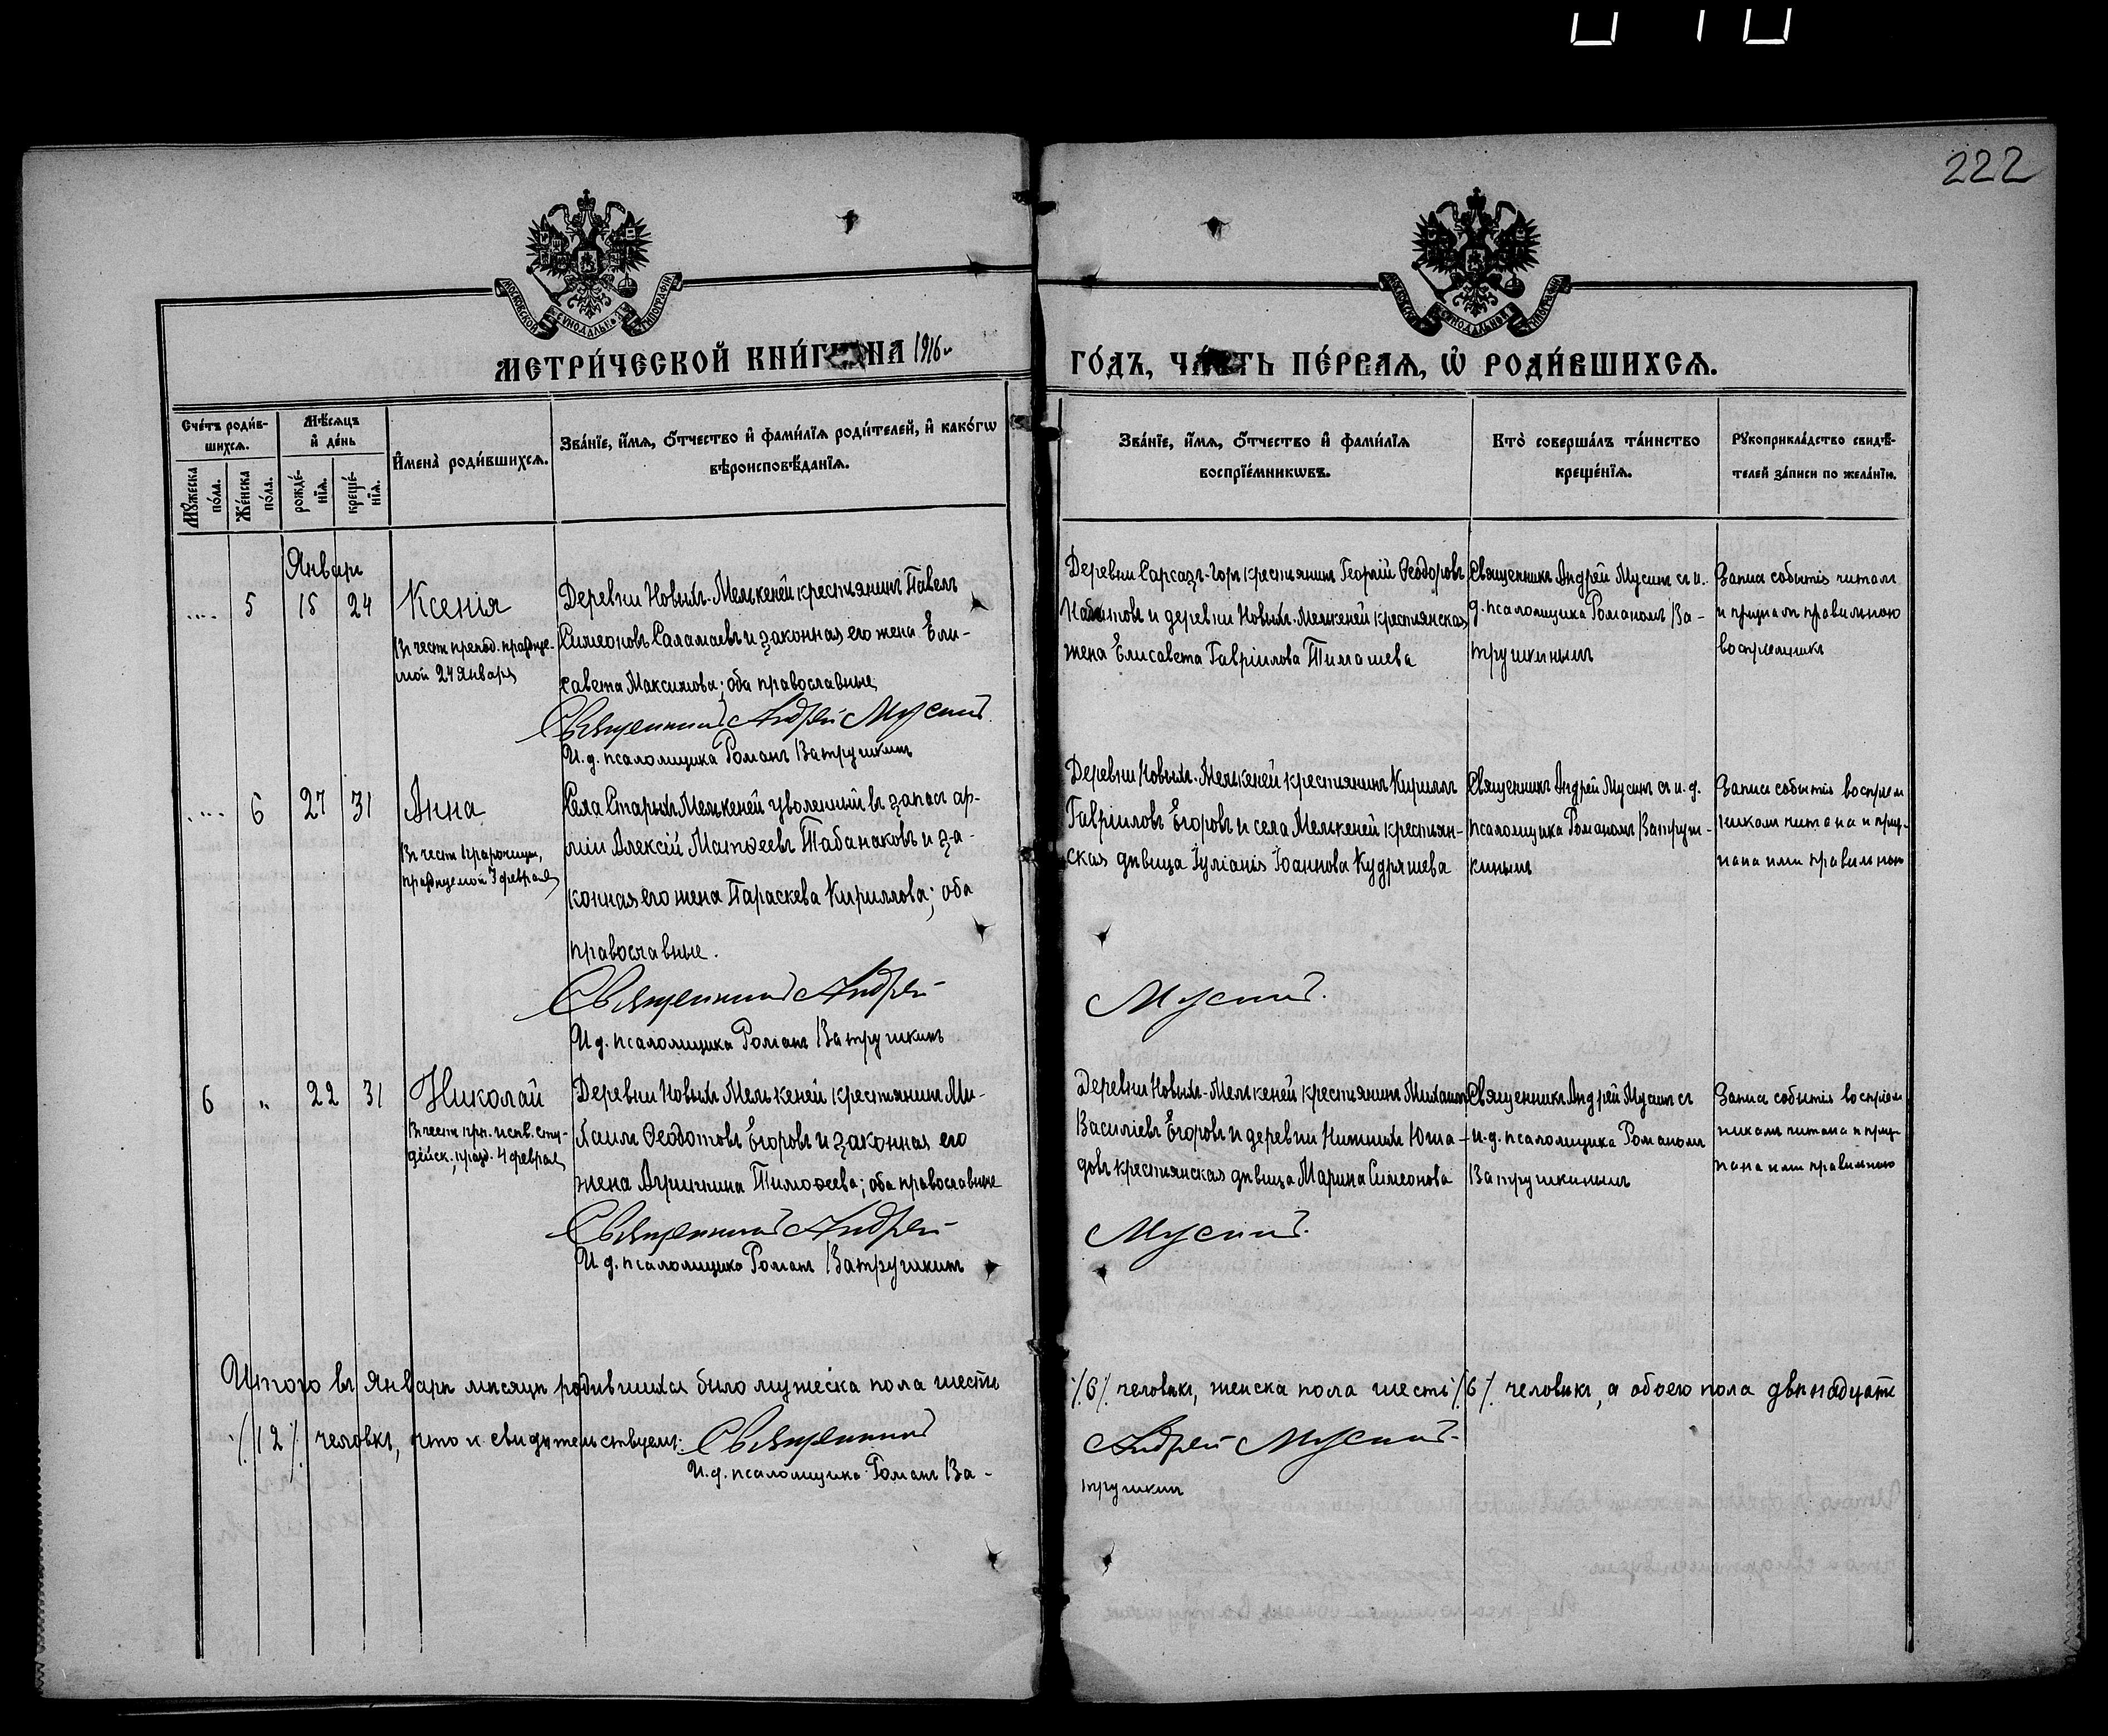 222
МОСКОВСКОЙ СѴНОДАЛЬНОЙ ТИПОГРАФІИ
МОСКОВСКОЙ СѴНОДАЛЬНОЙ ТИПОГРАФІИ
МЕТРИ́ЧЕСКОЙ КНИ́ГИ НА 1916 ГО́ДЪ, ЧА́СТЬ ПЕ́РВАЯ, Ѡ҆ РОДИ́ВШИХСЯ.
Сче́тъ роди́в-
шихся.
Мѣ́сяцъ
и҆ де́нь
Мꙋ́жеска
по́ла.
Же́нска
по́ла.
рожде́-
нїя.
креще́-
нїя.
И҆мена̀ роди́вшихся.
Зва́нїе, и҆́мя, ѻ҆́тчество и҆ фами́лїя роди́телей, и҆ како́гѡ
вѣроисповѣ́данїя.
Зва́нїе, и҆́мя, ѻ҆́тчество и҆ фами́лїя
воспрїе́мникѡвъ.
Кто̀ соверша́лъ та́инство
креще́нїя.
Рꙋкоприкла́дство свидѣ́-
телей за́писи по жела́нїю.
Январь
.... 5 15 24 Ксенія
Въ честь препод. праздуе-
мой 24 Января
Деревни Новыхъ-Мелькеней крестьянинъ Павелъ
Симеоновъ Саламаевъ и законная его жена Ели-
савета Максимова; оба православные
Священникъ Андрей Мусинъ.
И. д. псаломщика Романъ Ватрушкинъ
Деревни Сарсазъ-Горъ крестьянинъ Георгій Ѳеодоровъ
и деревни Новыхъ-Мелькеней крестьянская
жена Елисавета Гавріилова Тимашева
Священникъ Андрей Мусинъ съ и.
д. псаломщика Романомъ Ва-
трушкинымъ
Запись событія читалъ
и призналъ правильною
воспріемникъ
.... 6 27 31 Анна
Въ честь пророчицы,
празднуемой 3 февраля
Села Старыхъ Мелькеней уволенный въ запасъ ар-
міи Алексій Матѳеевъ Табанаковъ и за-
конная его жена Параскева Кириллова; оба
православные.
Священникъ Андрей Мусинъ.
И д. псаломщика Романъ Ватрушкинъ
Деревни Новыхъ-Мелькеней крестьянинъ Кириллъ
Гавріиловъ Егоровъ и села Мелькеней крестьян-
ская дѣвица Іуліанія Іоаннова Кудряшева
Священникъ Андрей Мусинъ съ и. д.
псаломщика Романомъ Ватруш-
кинымъ
Запись событія воспріем
никами читана и приз-
нана ими правильною
6 " 22 31 Николай
Въ честь прп. испв. сту-
дійск., празд. 4 февраля
Деревни Новыхъ Мелькеней крестьянинъ Ми-
хаилъ Ѳеодотовъ Егоровъ и законная его
жена Агриппина Тимоѳеева; оба православные
Священникъ Андрей Мусинъ.
И д. псаломщика Романъ Ватрушкинъ
Деревни Новыхъ-Мелькеней крестьянинъ Михаилъ
Василіевъ Егоровъ и деревни Нижнихъ Юша-
довъ крестьянская дѣвица Марина Симеонова
Священникъ Андрей Мусинъ съ
и. д. псаломщика Романомъ
Ватрушкинымъ
Запись событія воспріем
никами читана и приз-
нана ими правильною
Итого въ Январѣ мѣсяцѣ родившихся было мужеска пола шесть /6/ человѣкъ, женска пола шесть /6/ человѣкъ, а обоего пола двѣнадцать
/12/ человѣкъ, что и свидѣтельствуемъ: Священникъ Андрей Мусинъ.
И. д. псаломщика Романъ Ва-
трушкинъ